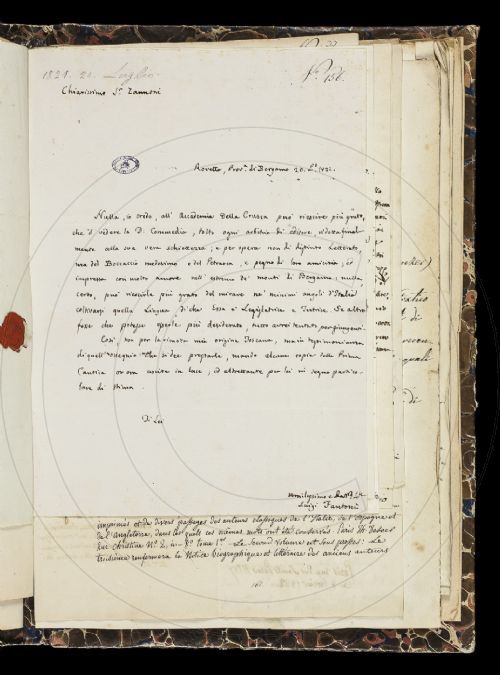 1821. 20. Luglio.
N.º 156.
Chiarissimo S.r Zannoni
Rovetta, Prov.a di Bergamo 20. L.o 1821.
Nulla, io credo, all' Accademia Della Crusca può riescire più grato,
che 'l vedere la D. Commedia, tolto ogni arbitrio di editore, ridotta final-
mente alla sua vera schiettezza; e per opera non di dipinto Letterato,
ma del Boccaccio medesimo e del Petrarca, e pegno di loro amicizia; ed
impressa con molto amore nell' estremo de' monti di Bergamo; nulla
certo, può riescirle più grato del mirare ne' minimi angoli d'Italia
coltivarsi quella Lingua, di che essa è Legislatrice e Tutrice. Se altro
fosse che potesse essere più desiderato,
Così, non per la rimota mia origine Toscana, ma in testimonianza
di quell' ossequio che si dee prestarle, mando alcune copie della Prima
Cantica or ora uscita in luce, ed altrettante per lei in segno partico-
lare di stima.
Di Lei
umilissimo e
Luigi Fantoni
imprimés et de divers passages des auteurs classiques de l'Italie, de l'Espagne et
de l'Angleterre, dans les quels ces mêmes mots ont été conservés. Paris
Rue Christine N.º 2, in 8.º Tome 1.er - Le Second Volume est sous presse: Le
troisième renfermera la Notice biographique et littéraire des anciens auteurs